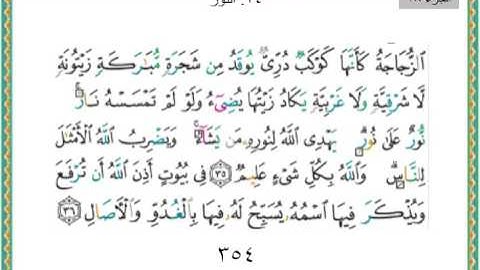 ٢٤. النور
ٱلزُّجَاجَةُ كَأَنَّهَا كَوْكَبٌ دُرِّيٌّ يُوقَدُ مِن شَجَرَةٍ مُّبَٰرَكَةٍ زَيْتُونَةٍ
لَّا شَرْقِيَّةٍ وَلَا غَرْبِيَّةٍ يَكَادُ زَيْتُهَا يُضِيٓءُ وَلَوْ لَمْ تَمْسَسْهُ نَارٌ
نُّورٌ عَلَىٰ نُورٍ يَهْدِى ٱللَّهُ لِنُورِهِۦ مَن يَشَآءُ وَيَضْرِبُ ٱللَّهُ ٱلْأَمْثَٰلَ
لِلنَّاسِ وَٱللَّهُ بِكُلِّ شَىْءٍ عَلِيمٌ ٣٥ فِى بُيُوتٍ أَذِنَ ٱللَّهُ أَن تُرْفَعَ
وَيُذْكَرَ فِيهَا ٱسْمُهُۥ يُسَبِّحُ لَهُۥ فِيهَا بِٱلْغُدُوِّ وَٱلْءَاصَالِ ٣٦
٣٥٤